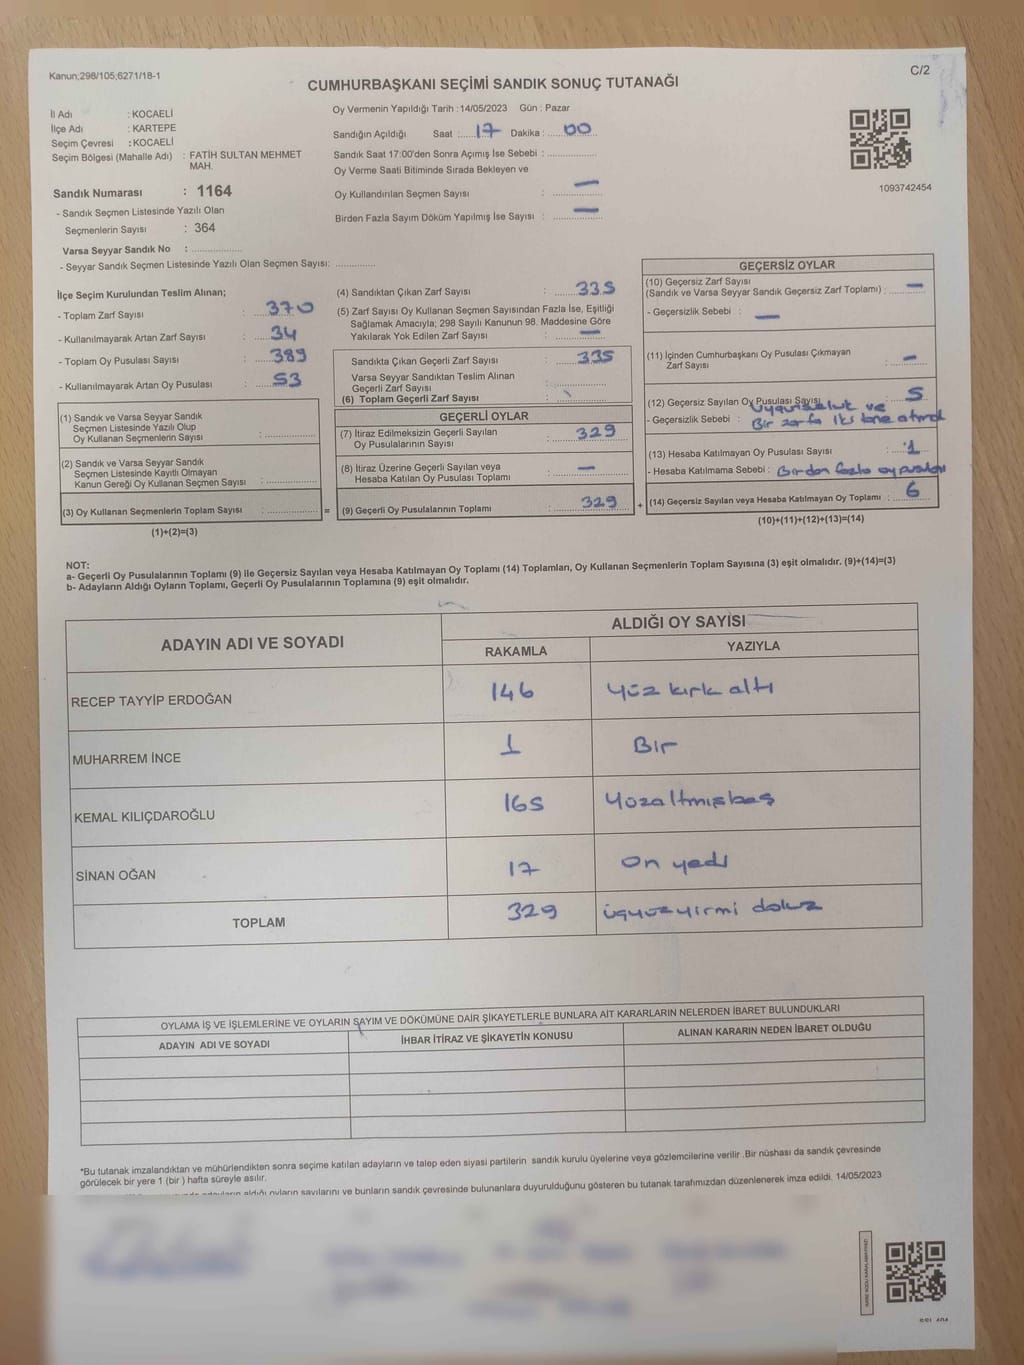 Kanun;298/105;6271/18-1
C/2
CUMHURBAŞKANI SEÇİMİ SANDIK SONUÇ TUTANAĞI
Oy Vermenin Yapıldığı Tarih :14/05/2023 Gün : Pazar
İl Adı : KOCAELİ
İlçe Adı : KARTEPE
Seçim Çevresi : KOCAELİ
Seçim Bölgesi (Mahalle Adı) : FATİH SULTAN MEHMET MAH.
Sandık Numarası : 1164
- Sandık Seçmen Listesinde Yazılı Olan
Seçmenlerin Sayısı : 364
Varsa Seyyar Sandık No : ..................
- Seyyar Sandık Seçmen Listesinde Yazılı Olan Seçmen Sayısı: ..............
Sandığın Açıldığı Saat :.....17 Dakika : .....00
Sandık Saat 17:00'den Sonra Açımış İse Sebebi : ..................
Oy Verme Saati Bitiminde Sırada Bekleyen ve
Oy Kullandırılan Seçmen Sayısı : —
Birden Fazla Sayım Döküm Yapılmış İse Sayısı : —
1093742454
İlçe Seçim Kurulundan Teslim Alınan;
- Toplam Zarf Sayısı : 370
- Kullanılmayarak Artan Zarf Sayısı : 34
- Toplam Oy Pusulası Sayısı : 389
- Kullanılmayarak Artan Oy Pusulası : 53
(1) Sandık ve Varsa Seyyar Sandık
Seçmen Listesinde Yazılı Olup
Oy Kullanan Seçmenlerin Sayısı : ..................
(2) Sandık ve Varsa Seyyar Sandık
Seçmen Listesinde Kayıtlı Olmayan
Kanun Gereği Oy Kullanan Seçmen Sayısı : ..................
(3) Oy Kullanan Seçmenlerin Toplam Sayısı : .................. =
(1)+(2)=(3)
(4) Sandıktan Çıkan Zarf Sayısı : 335
(5) Zarf Sayısı Oy Kullanan Seçmen Sayısından Fazla İse, Eşitliği
Sağlamak Amacıyla; 298 Sayılı Kanunun 98. Maddesine Göre
Yakılarak Yok Edilen Zarf Sayısı : —
Sandıkta Çıkan Geçerli Zarf Sayısı : 335
Varsa Seyyar Sandıktan Teslim Alınan
Geçerli Zarf Sayısı : ..................
(6) Toplam Geçerli Zarf Sayısı : ..................
GEÇERLİ OYLAR
(7) İtiraz Edilmeksizin Geçerli Sayılan
Oy Pusulalarının Sayısı : 329
(8) İtiraz Üzerine Geçerli Sayılan veya
Hesaba Katılan Oy Pusulası Toplamı : —
(9) Geçerli Oy Pusulalarının Toplamı : 329 +
GEÇERSİZ OYLAR
(10) Geçersiz Zarf Sayısı
(Sandık ve Varsa Seyyar Sandık Geçersiz Zarf Toplamı) : —
- Geçersizlik Sebebi : —
(11) İçinden Cumhurbaşkanı Oy Pusulası Çıkmayan
Zarf Sayısı : —
(12) Geçersiz Sayılan Oy Pusulası Sayısı : 5
- Geçersizlik Sebebi : ve
Bir zarfa iki tane
(13) Hesaba Katılmayan Oy Pusulası Sayısı : 1
- Hesaba Katılmama Sebebi : Birden fazla oy pusulası
(14) Geçersiz Sayılan veya Hesaba Katılmayan Oy Toplamı : 6
(10)+(11)+(12)+(13)=(14)
NOT:
a- Geçerli Oy Pusulalarının Toplamı (9) ile Geçersiz Sayılan veya Hesaba Katılmayan Oy Toplamı (14) Toplamları, Oy Kullanan Seçmenlerin Toplam Sayısına (3) eşit olmalıdır. (9)+(14)=(3)
b- Adayların Aldığı Oyların Toplamı, Geçerli Oy Pusulalarının Toplamına (9) eşit olmalıdır.
ADAYIN ADI VE SOYADI
ALDIĞI OY SAYISI
RAKAMLA YAZIYLA
RECEP TAYYİP ERDOĞAN 146 Yüz kırk altı
MUHARREM İNCE 1 Bir
KEMAL KILIÇDAROĞLU 165 Yüzaltmışbeş
SİNAN OĞAN 17 On yedi
TOPLAM 329 üçyüzyirmi dokuz
OYLAMA İŞ VE İŞLEMLERİNE VE OYLARIN SAYIM VE DÖKÜMÜNE DAİR ŞİKAYETLERLE BUNLARA AİT KARARLARIN NELERDEN İBARET BULUNDUKLARI
ADAYIN ADI VE SOYADI İHBAR İTİRAZ VE ŞİKAYETİN KONUSU ALINAN KARARIN NEDEN İBARET OLDUĞU
*Bu tutanak imzalandıktan ve mühürlendikten sonra seçime katılan adayların ve talep eden siyasi partilerin sandık kurulu üyelerine veya gözlemcilerine verilir .Bir nüshası da sandık çevresinde
görülecek bir yere 1 (bir ) hafta süreyle asılır.
aldığı oyların sayılarını ve bunların sandık çevresinde bulunanlara duyurulduğunu gösteren bu tutanak tarafımızdan düzenlenerek imza edildi. 14/05/2023